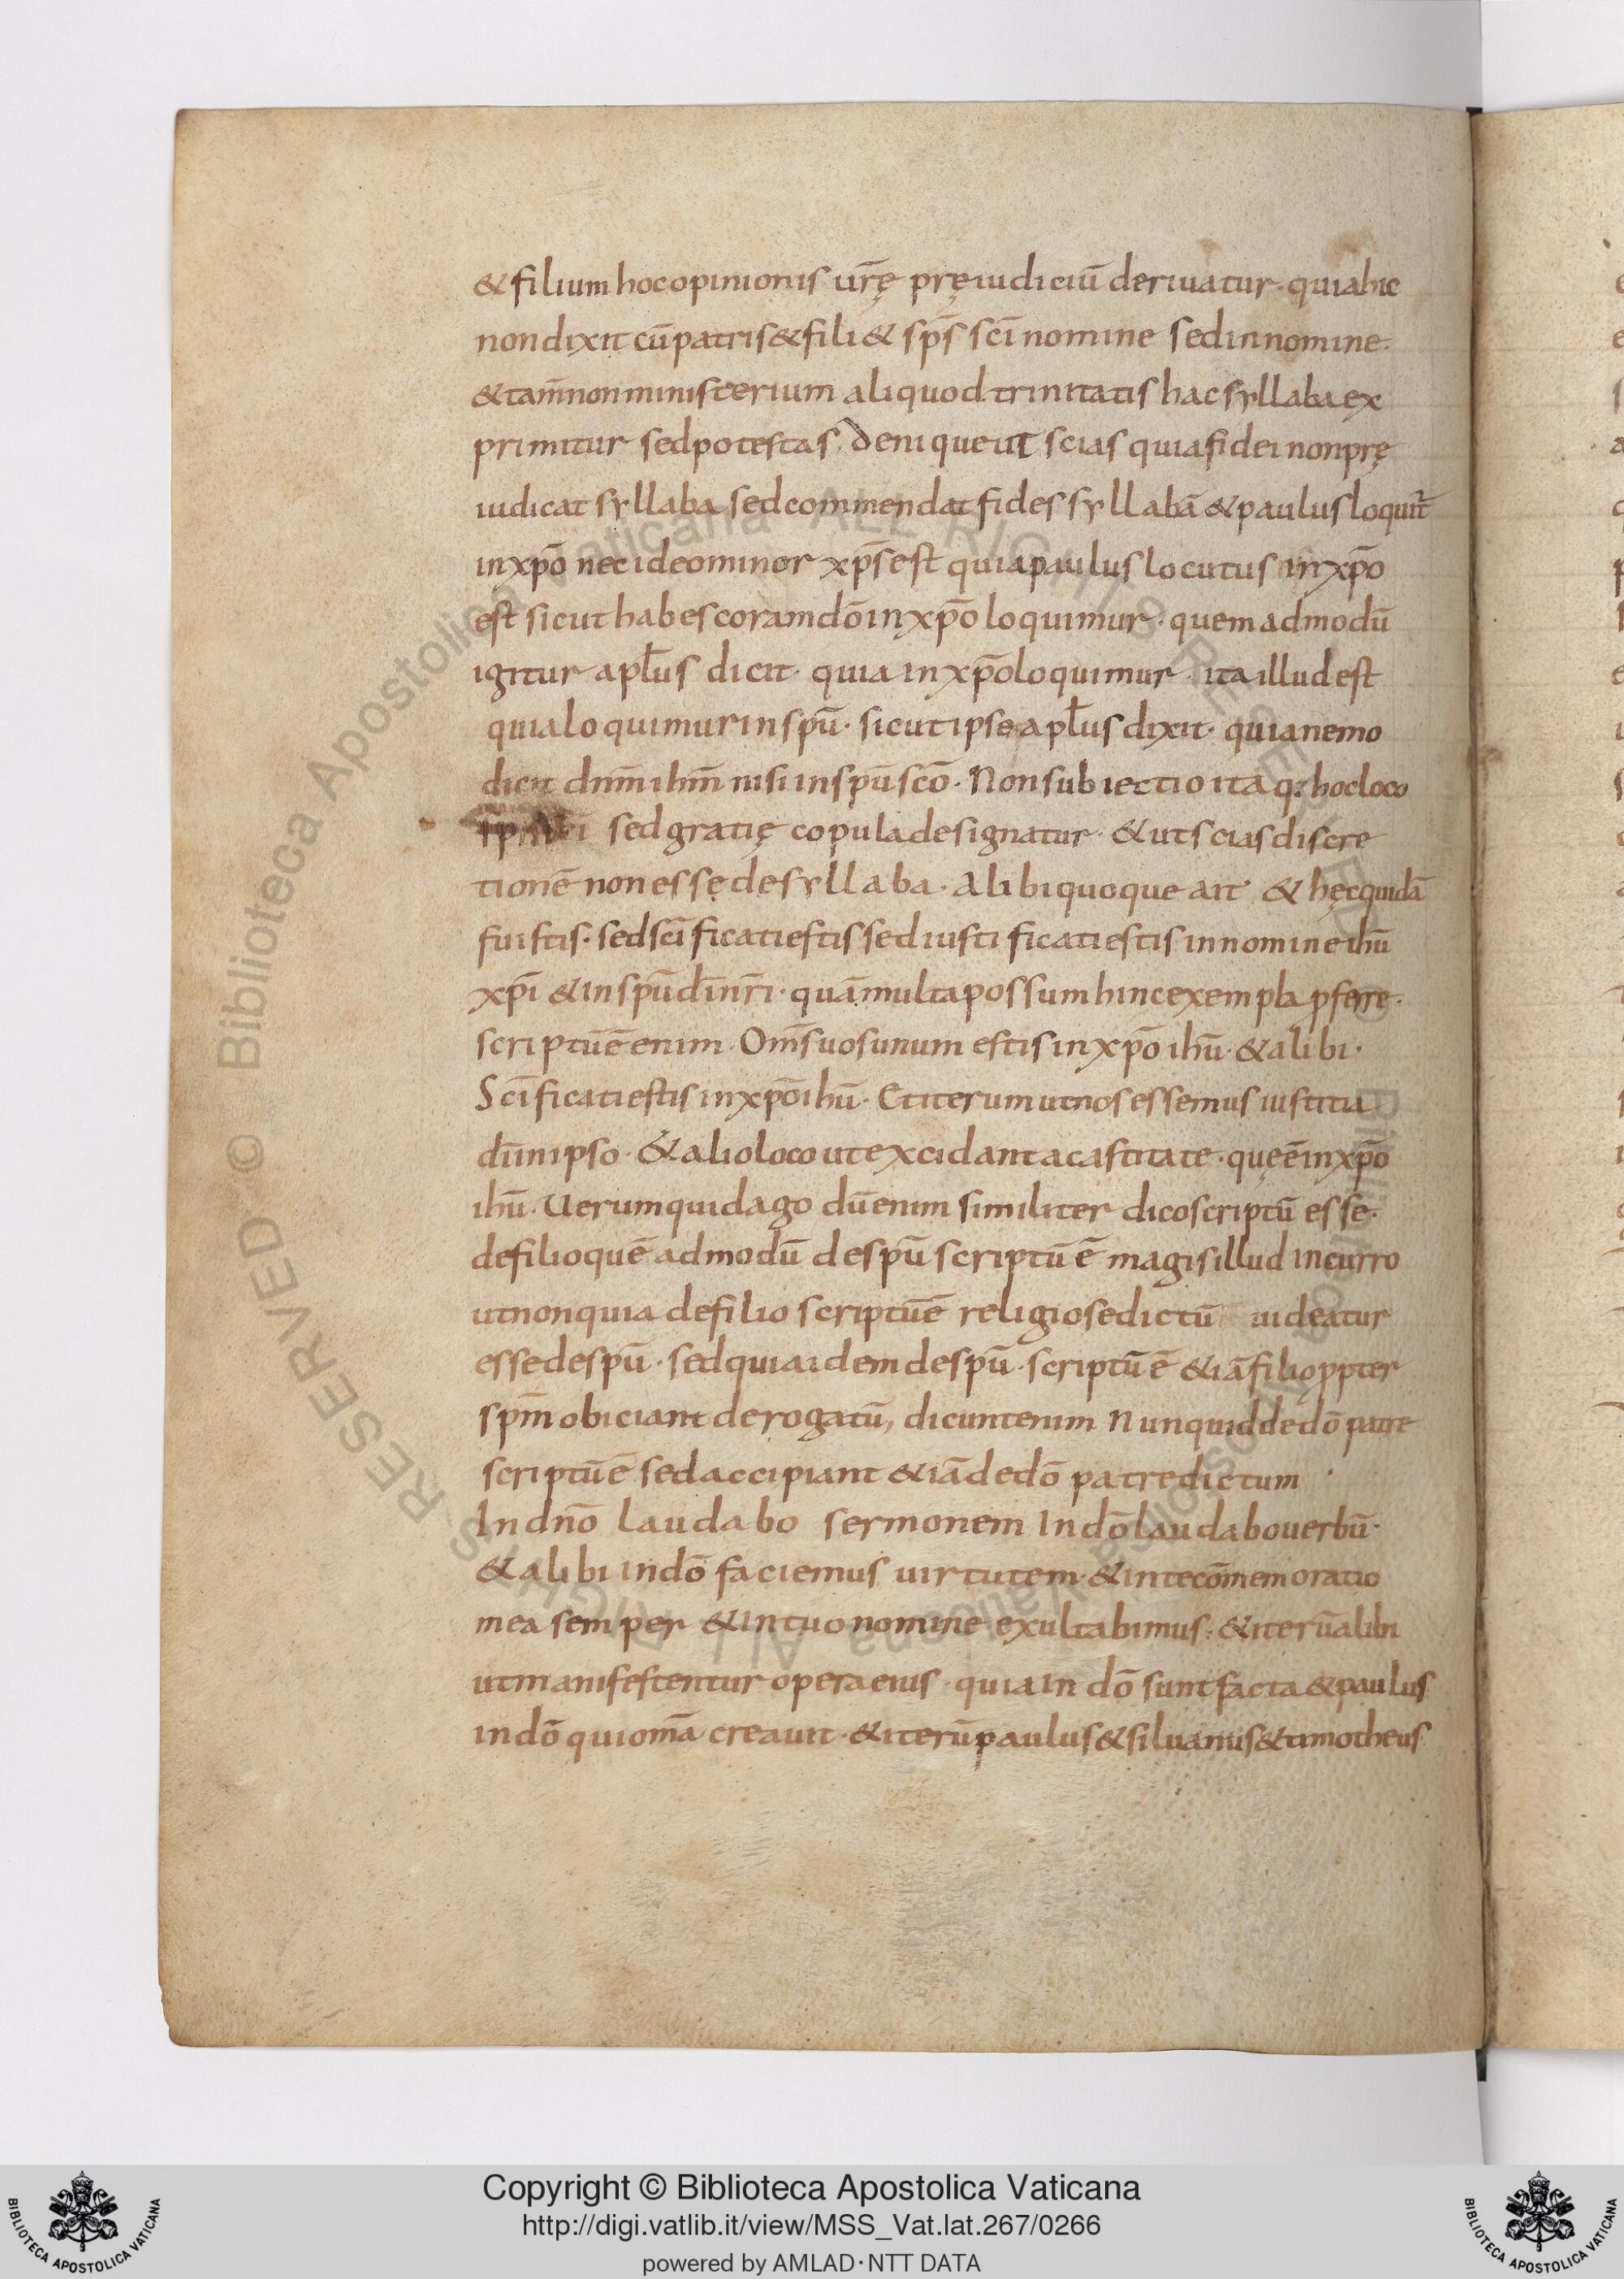 & filium hoc opinionis ur̄ę pręiudiciū deriuatur· quia hic
non dixit cū patris & fili & sp̄s sc̄i nomine sed in nomine·
& tam̄ non ministerium aliquod trinitatis hac syllaba ex
primitur sed potestas, Denique ut scias quia fidei non prę
iudicat syllaba sed commendat fides syllabā & paulus loquit̄
in xp̄o nec ideo minor xp̄s est quia paulus locutus in xp̄o
est sicut habes coram dō in xp̄o loquimur· quemadmodū
igitur apl̄us dicit· quia in xp̄o loquimur· ita illud est
quia loquimur in spū· sicut ipse apl̄us dixit· quia nemo
dicit dnm̄ ihm̄ nisi in spū scō· Non subiectio itaq; hoc loco
sed gratię copula designatur· & ut scias discre
tionē non esse de syllaba· Alibi quoque ait· & hęc quidā
fuistis· sed sc̄ificati estis sed iustificati estis in nomine ihū
xp̄i & in spū dīnr̄i· quā multa possum hinc exempla pferre·
scriptū ē enim· Om̄s uos unum estis in xp̄o ihū· & alibi·
Sc̄ificati estis in xp̄o ihū· Et iterum ut nos essemus iustitia
dī in ipso· & alio loco ut excidant a castitate· quę ē in xp̄o
ihū· Uerum quid ago dū enim similiter dico scriptū esse·
de filio quē admodū de spū scriptū ē magis illud incurro
ut non quia de filio scriptū ē religiose dictū uideatur
esse de spū· sed quia idem de spū· scriptū ē &iā filio ppter
spm̄ obiciant derogatū, dicunt enim Nunquid de dō patre
scriptū ē sed accipiant &iā de dō patre dictum ·
In dn̄o laudabo sermonem In dō laudabo uerbū·
& alibi in dō faciemus uirtutem· & in te cōmemoratio
mea semper & in tuo nomine exultabimus· & iterū alibi
ut manifestentur opera eius· quia in dō sunt facta & paulus
in dō qui om̄a creauit· & iterū paulus & siluanus & timotheus
Biblioteca Apostolica Vaticana ALL RIGHTS RESERVED ©
Copyright © Biblioteca Apostolica Vaticana
http://digi.vatlib.it/view/MSS_Vat.lat.267/0266
powered by AMLAD · NTT DATA
BIBLIOTECA APOSTOLICA VATICANA
BIBLIOTECA APOSTOLICA VATICANA